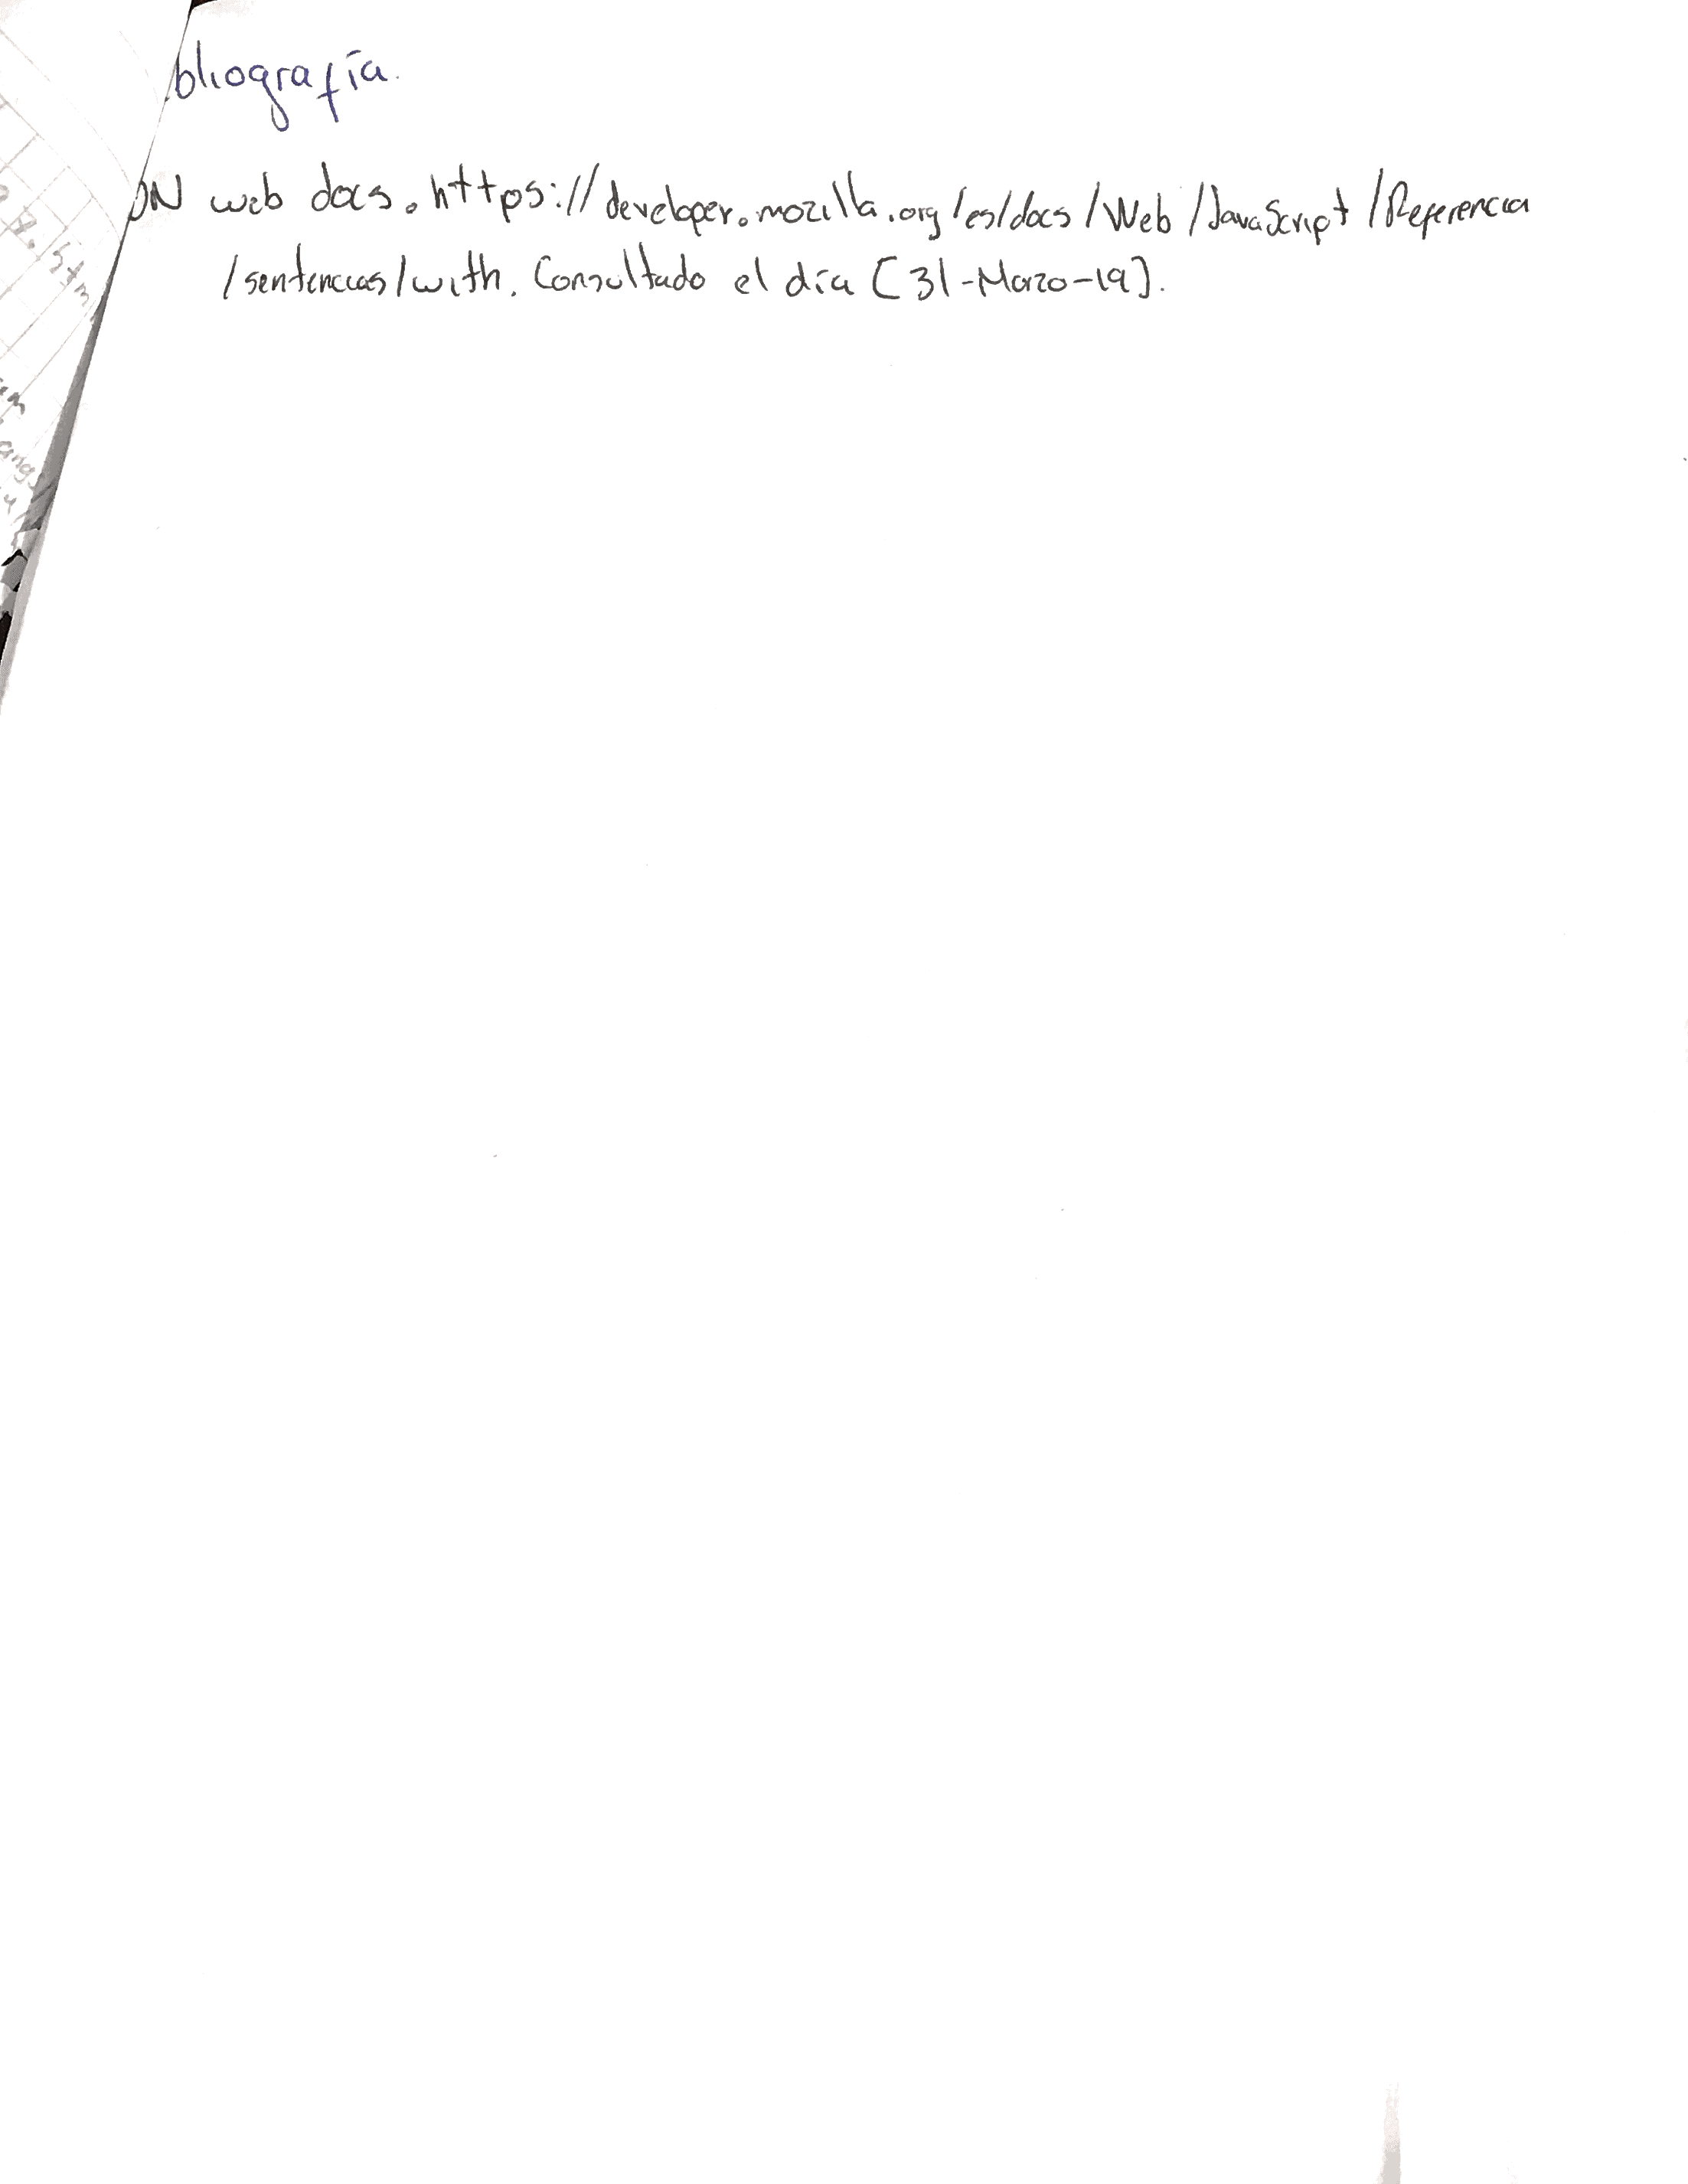 bliografía.
DN web docs. https://developer.mozilla.org/es/docs/Web/JavaScript/Referencia
/sentencias/with. Consultado el día [31-Marzo-19].